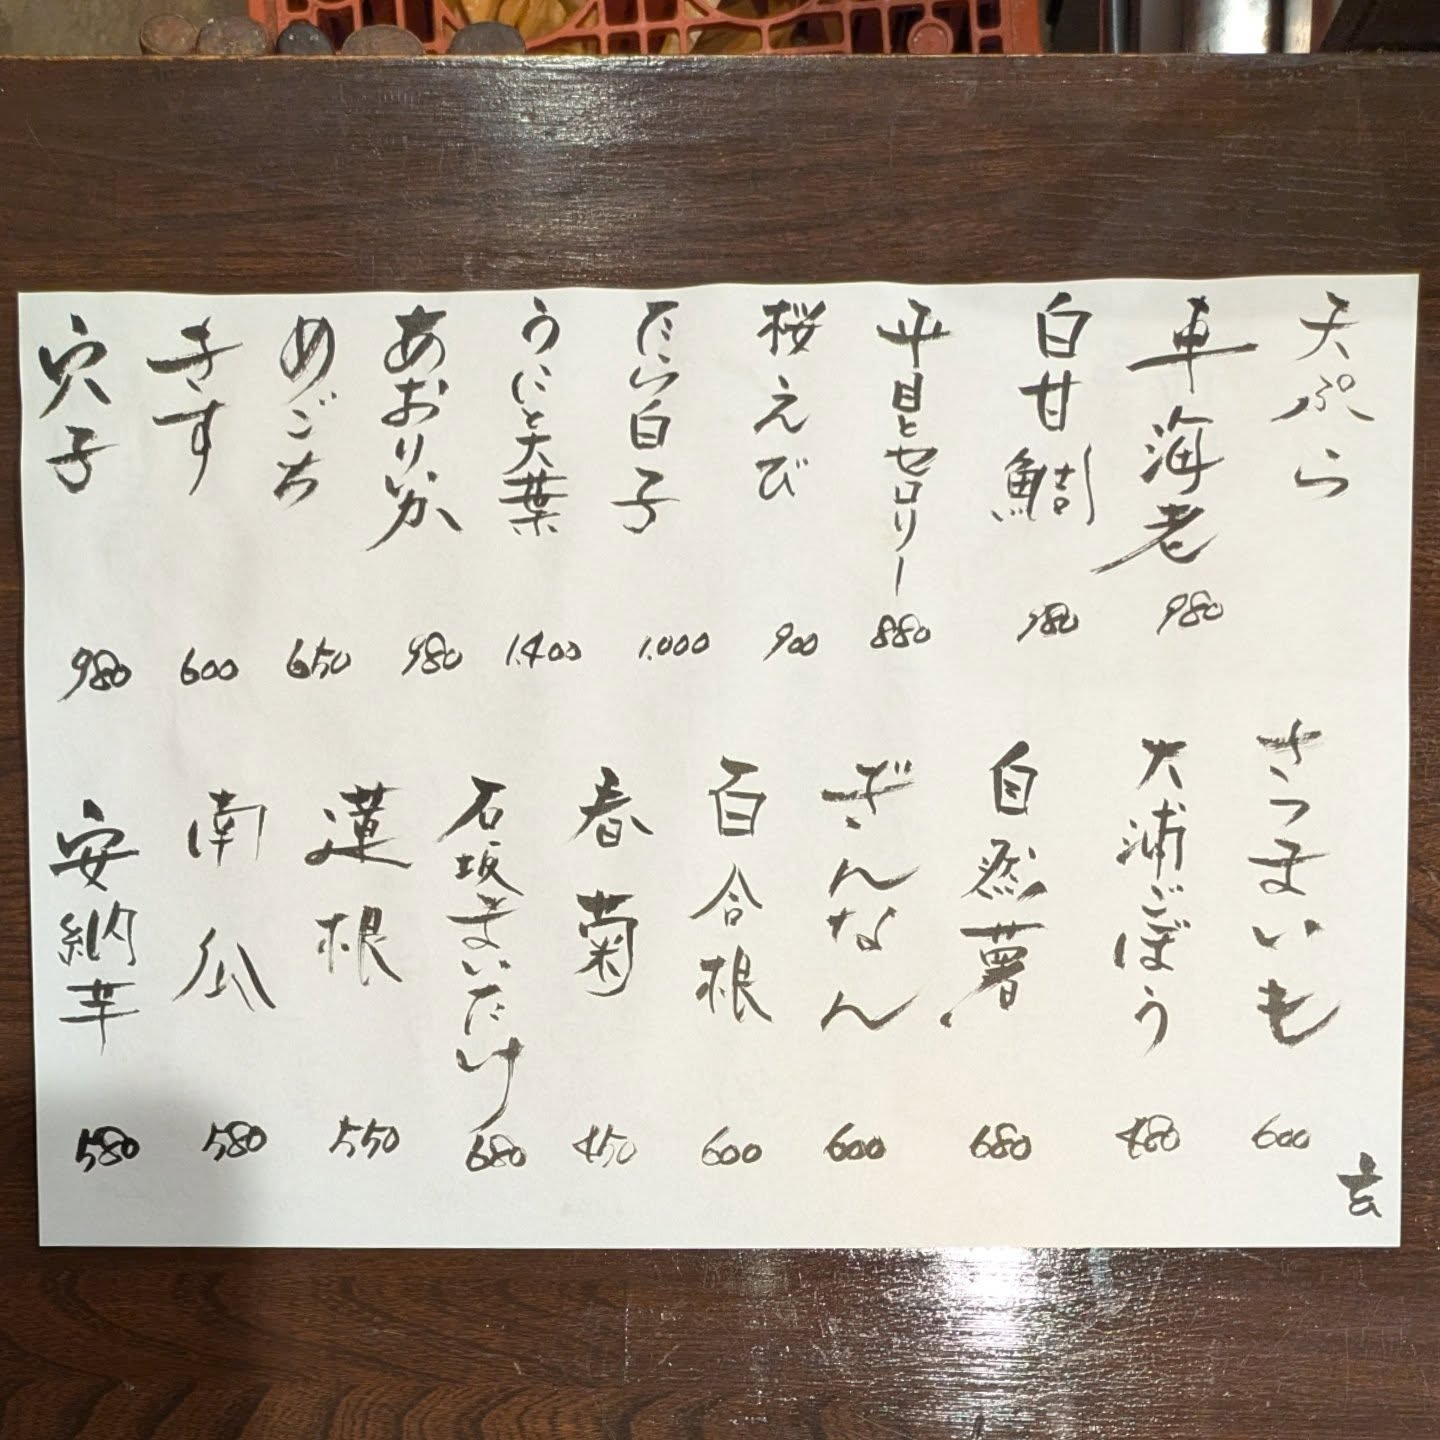 天ぷら
車海老 980
白甘鯛 980
平目とセロリー 880
桜えび 900
たら白子 1.000
うにと大葉 1.400
あおりいか 980
めごち 650
きす 600
穴子 980
さつまいも 600
大浦ごぼう 480
自然薯 680
ぎんなん 600
百合根 600
春菊 450
石坂まいたけ 680
蓮根 550
南瓜 580
安納芋 580
玄